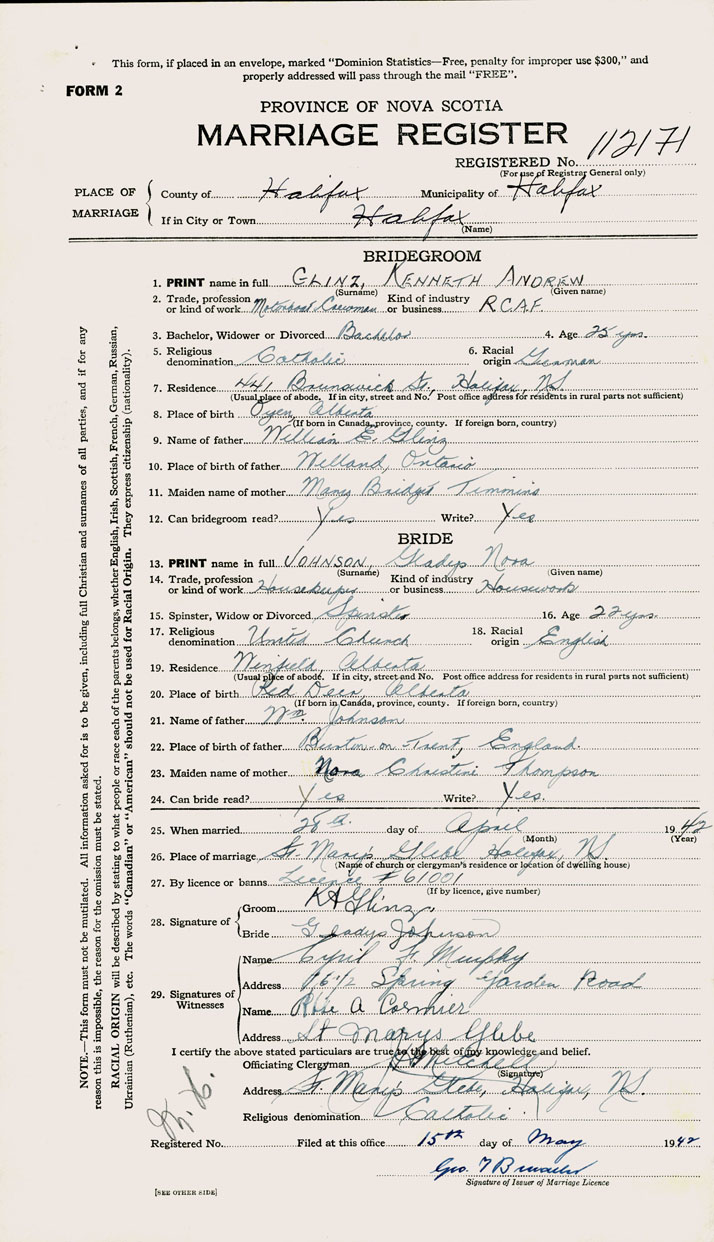 This form, if placed in an envelope, marked "Dominion Statistics—Free, penalty for improper use $300," and
properly addressed will pass through the mail "FREE".
FORM 2
PROVINCE OF NOVA SCOTIA
MARRIAGE REGISTER
112171
REGISTERED No.
(For use of Registrar General only)
PLACE OF MARRIAGE
County of Halifax Municipality of Halifax
If in City or Town Halifax
(Name)
BRIDEGROOM
1. PRINT name in full GLINZ, KENNETH ANDREW
(Surname) (Given name)
2. Trade, profession or kind of work Motorboat Crewman Kind of industry or business R.C.A.F.
3. Bachelor, Widower or Divorced Bachelor 4. Age 25 yrs.
5. Religious denomination Catholic 6. Racial origin German
7. Residence 441 Brunswick St., Halifax, N.S.
(Usual place of abode. If in city, street and No. Post office address for residents in rural parts not sufficient)
8. Place of birth Oyen, Alberta
(If born in Canada, province, county. If foreign born, country)
9. Name of father William E. Glinz
10. Place of birth of father Welland, Ontario
11. Maiden name of mother Mary Bridget Timmins
12. Can bridegroom read? Yes Write? Yes
BRIDE
13. PRINT name in full JOHNSON, Gladys Nora
(Surname) (Given name)
14. Trade, profession or kind of work Housekeeper Kind of industry or business Housework
15. Spinster, Widow or Divorced Spinster 16. Age 22 yrs.
17. Religious denomination United Church 18. Racial origin English
19. Residence Winfield, Alberta
(Usual place of abode. If in city, street and No. Post office address for residents in rural parts not sufficient)
20. Place of birth Red Deer, Alberta
(If born in Canada, province, county. If foreign born, country)
21. Name of father Wm Johnson
22. Place of birth of father Burton-on-Trent, England.
23. Maiden name of mother Nora Christine Thompson
24. Can bride read? Yes Write? Yes.
25. When married 28th day of April 1942
(Month) (Year)
26. Place of marriage St. Mary's Glebe Halifax, N.S.
(Name of church or clergyman's residence or location of dwelling house)
27. By licence or banns Licence # 61001
(If by licence, give number)
28. Signature of
Groom K A Glinz
Bride Gladys Johnson
29. Signatures of Witnesses
Name Cyril F. Murphy
Address Spring Garden Road
Name Rose A Cormier
Address St Marys Glebe
I certify the above stated particulars are true to the best of my knowledge and belief.
Officiating Clergyman Mitchell
(Signature)
Address St. Mary's Glebe, Halifax, N.S.
Religious denomination Catholic
Registered No. Filed at this office 15th day of May 1942
Geo. T
Signature of Issuer of Marriage Licence
[SEE OTHER SIDE]
NOTE.—This form must not be mutilated. All information asked for is to be given, including full Christian and surnames of all parties, and if for any
reason this is impossible, the reason for the omission must be stated.
RACIAL ORIGIN will be described by stating to what people or race each of the parents belongs, whether English, Irish, Scottish, French, German, Russian,
Ukrainian (Ruthenian), etc. The words "Canadian" or "American" should not be used for Racial Origin. They express citizenship (nationality).